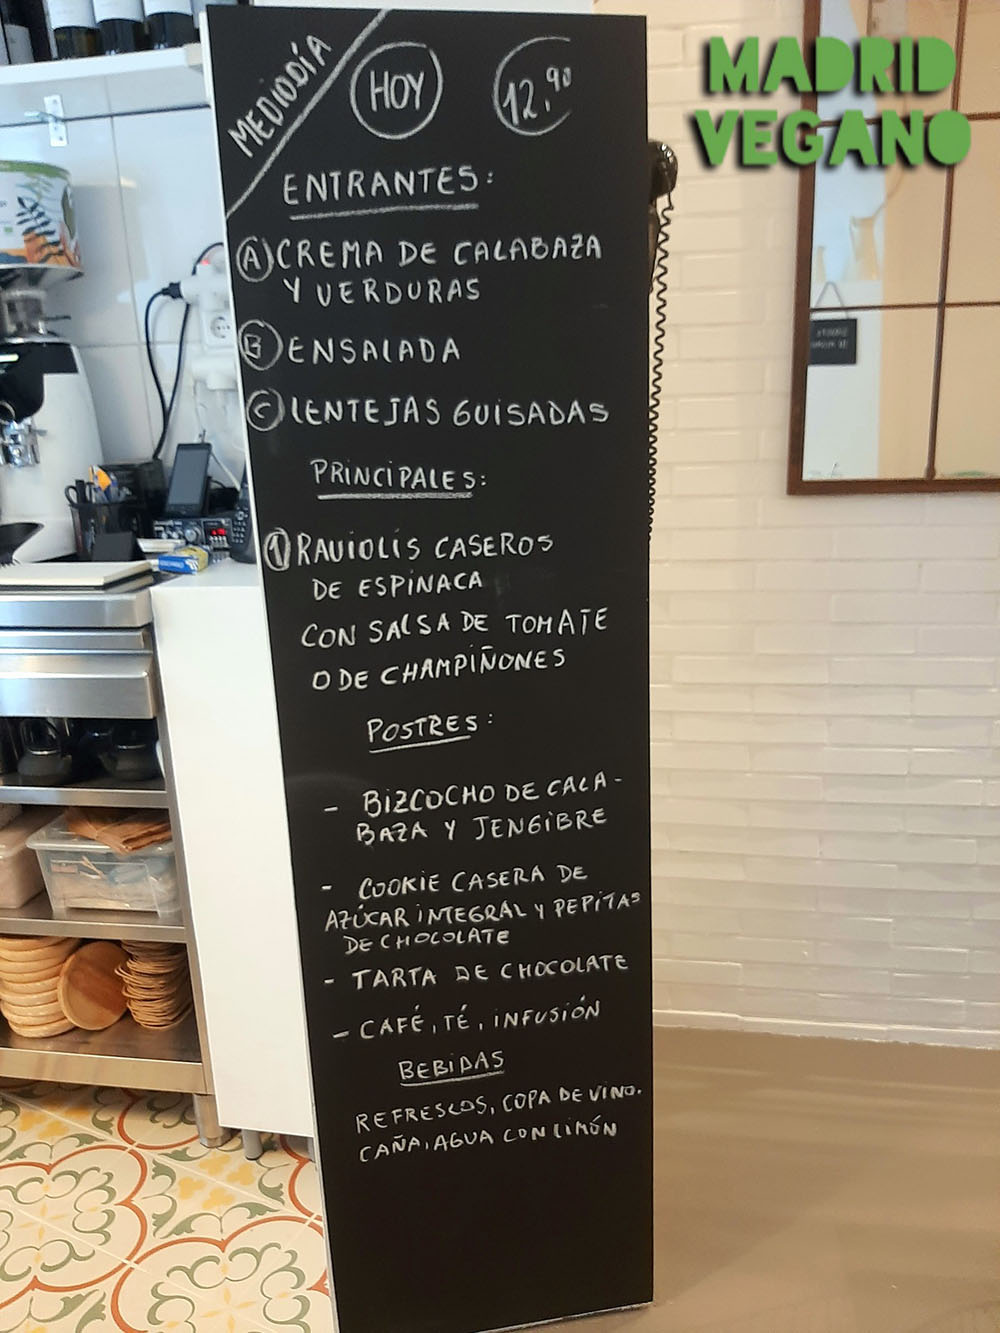 MADRID
VEGANO
MEDIODÍA
HOY
12,90
ENTRANTES:
A CREMA DE CALABAZA
Y VERDURAS
B ENSALADA
C LENTEJAS GUISADAS
PRINCIPALES:
1 RAVIOLIS CASEROS
DE ESPINACA
CON SALSA DE TOMATE
O DE CHAMPIÑONES
POSTRES:
- BIZCOCHO DE CALA-
BAZA Y JENGIBRE
- COOKIE CASERA DE
AZÚCAR INTEGRAL Y PEPITAS
DE CHOCOLATE
- TARTA DE CHOCOLATE
- CAFÉ, TÉ, INFUSIÓN
BEBIDAS
REFRESCOS, COPA DE VINO.
CAÑA, AGUA CON LIMÓN